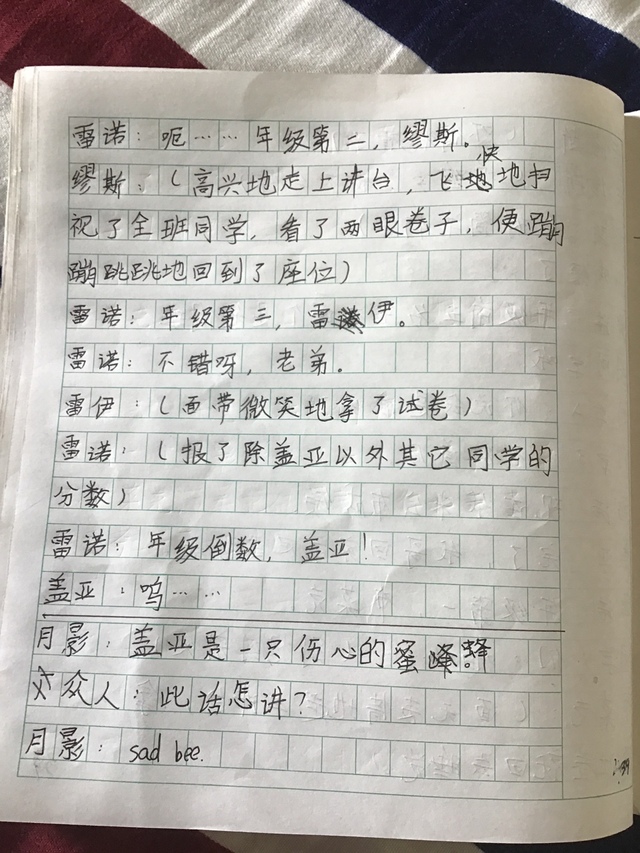 雷诺：呃……年级第二，缪斯。
缪斯：（高兴地走上讲台，飞快地扫
视了全班同学，看了两眼卷子，便蹦
蹦跳跳地回到了座位）
雷诺：年级第三，雷伊。
雷诺：不错呀，老弟。
雷伊：（面带微笑地拿了试卷）
雷诺：（报了除盖亚以外其它同学的
分数）
雷诺：年级倒数，盖亚！
盖亚：呜……
月影：盖亚是一只伤心的蜜蜂。
众人：此话怎讲？
月影：sad bee.